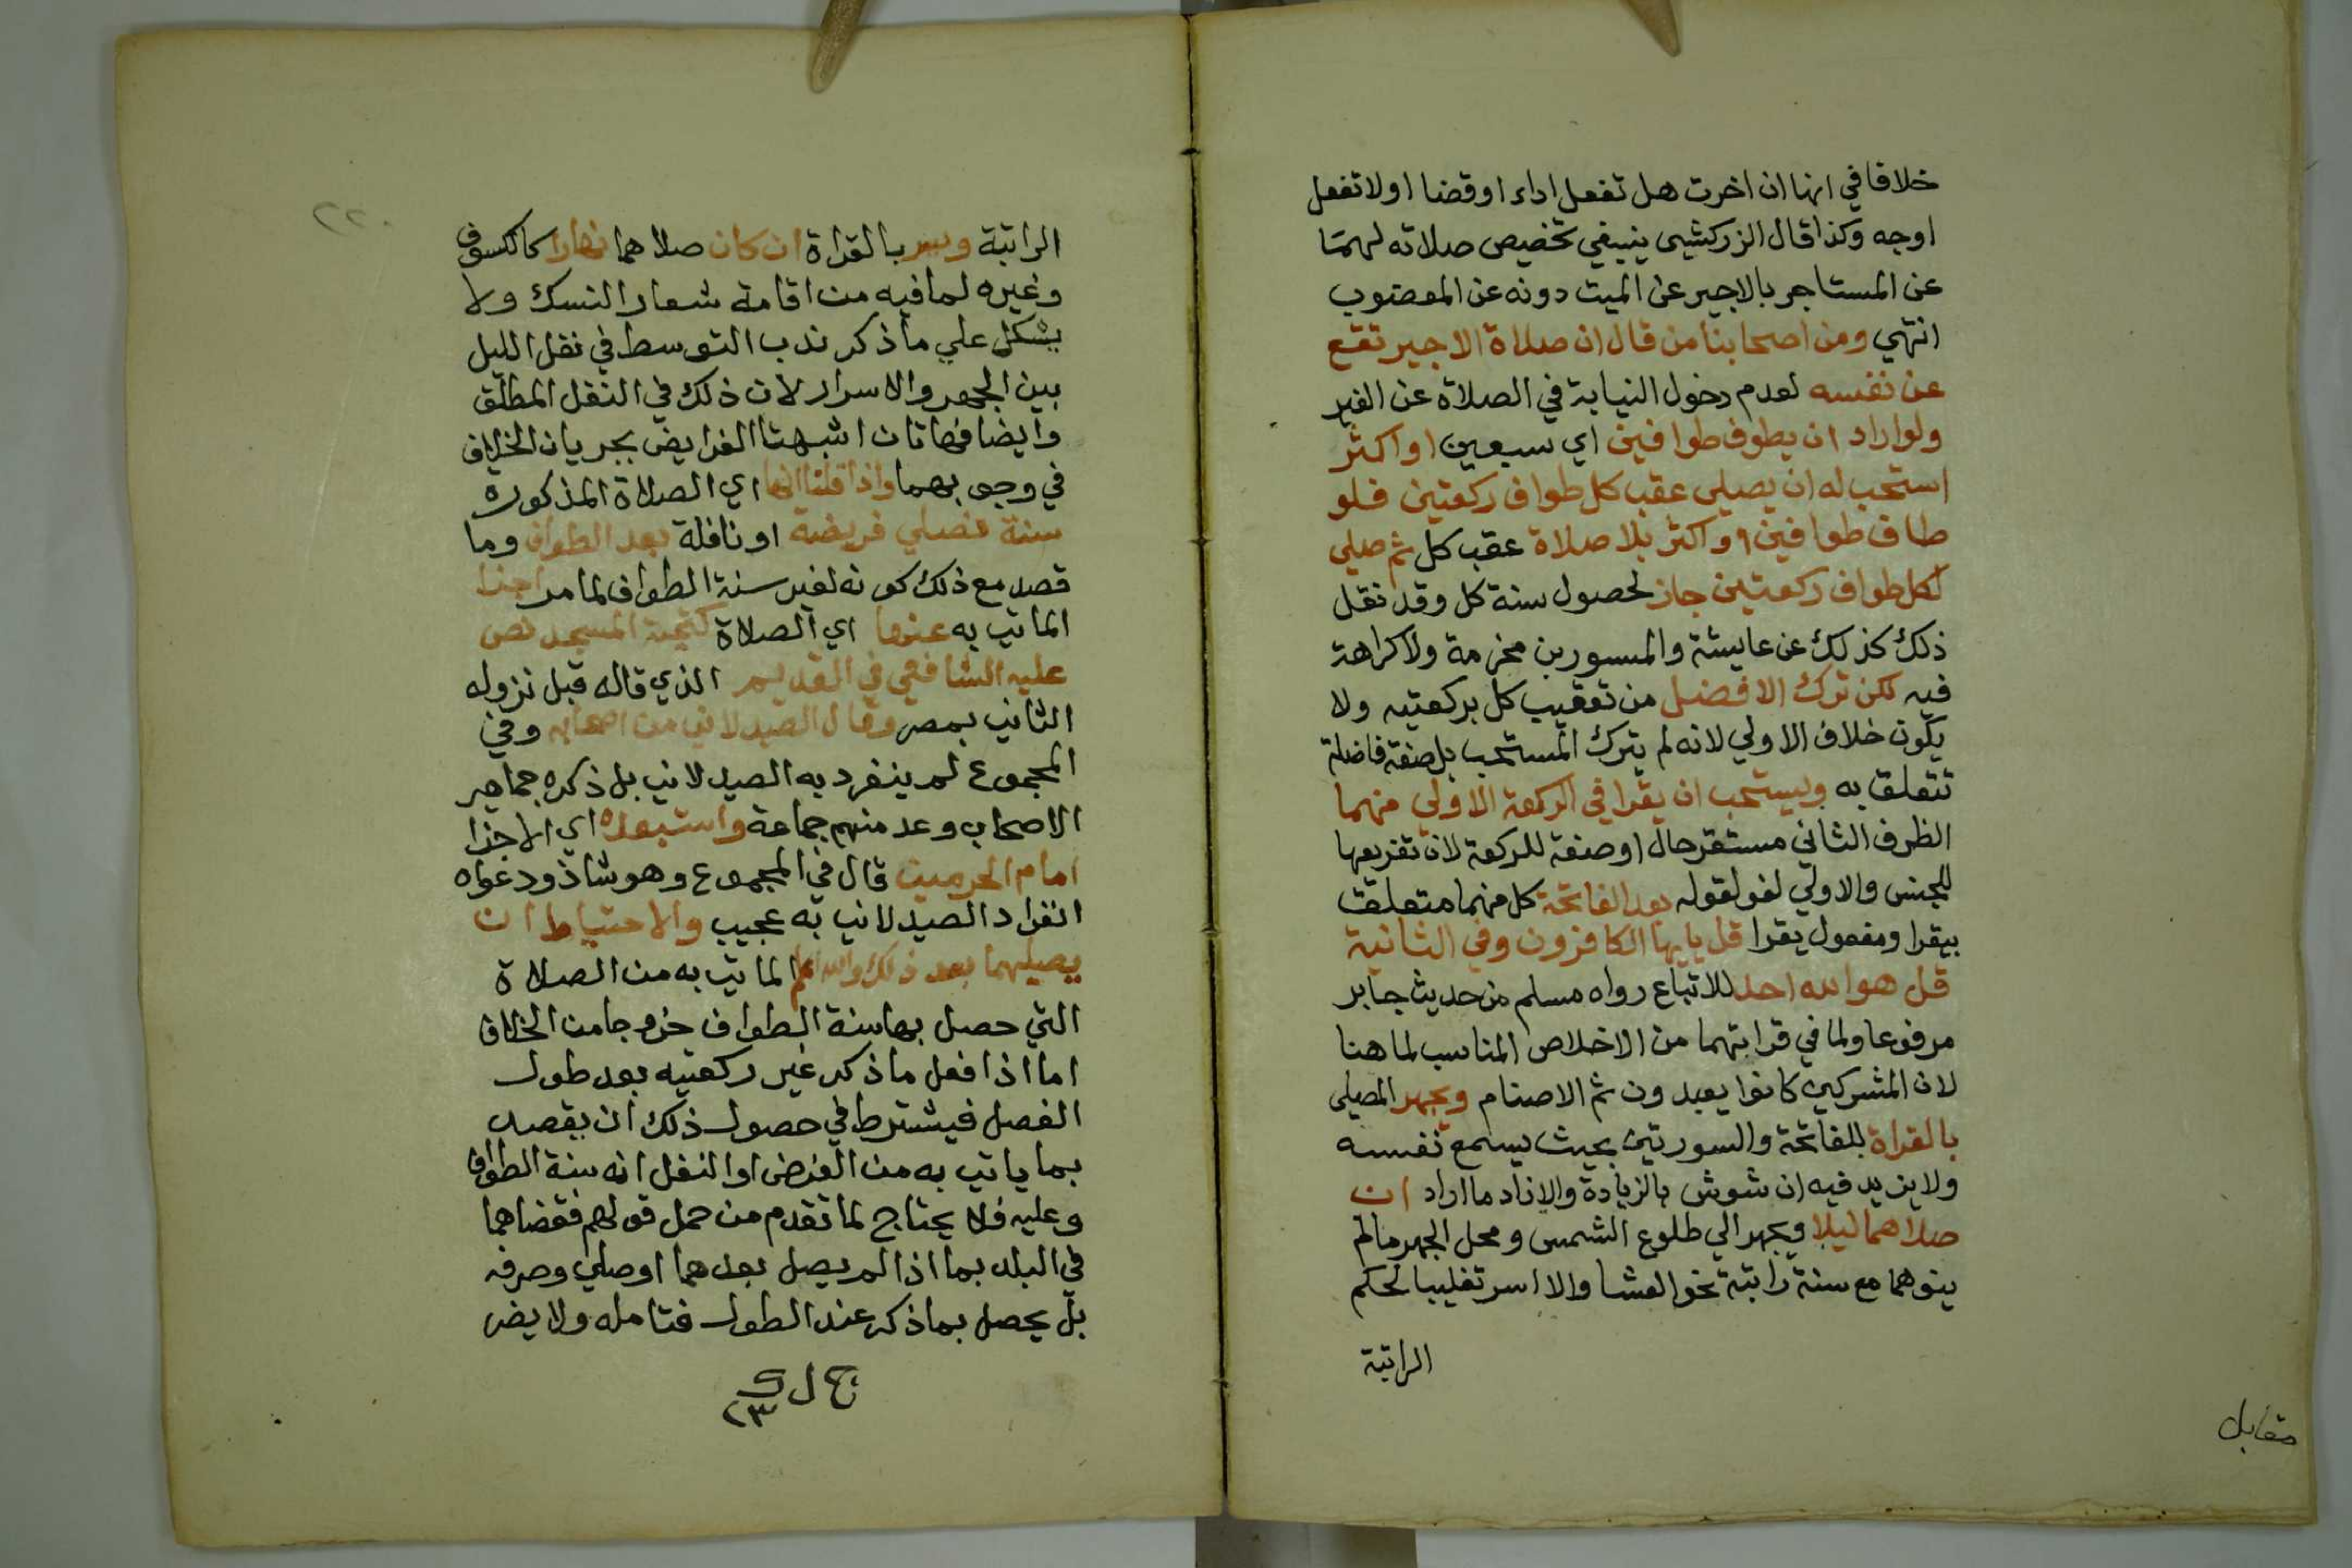 خلافا في انها ان اخرت هل تفعل اداء او قضا اولا تفعل
اوجه وكذا قال الزركشي ينبغي تخصيص صلاته لهما
عن المستاجر بالاجير عن الميت دونه عن المعضوب
انتهي ومن اصحابنا من قال ان صلاة الاجير تقع
عن نفسه لعدم دخول النيابة في الصلاة عن الغير
ولو اراد ان يطوف طوافين اي سبعين او اكثر
استحب له ان يصلي عقب كل طواف ركعتين فلو
طاف طوافين او اكثر بلا صلاة عقب كل ثم صلي
لكل طواف ركعتين جاز لحصول سنة كل وقد نقل
ذلك كذلك عن عايشة والمسور بن مخرمة ولا كراهة
فيه لكن ترك الافضل من تعقيب كل بركعتيه ولا
يكون خلاف الاولي لانه لم يترك المستحب بل صفة فاضلة
تتعلق به ويستحب ان يقرا في الركعة الاولي منهما
الظرف الثاني مستقر حال او صفة للركعة لان تعريفها
للجنس والاولي لغو لقوله بعد الفاتحة كل منهما متعلق
بيقرا ومفعول يقرا قل يايها الكافرون وفي الثانية
قل هو الله احد للاتباع رواه مسلم من حديث جابر
مرفوعا ولما في قراتهما من الاخلاص المناسب لما هنا
لان المشركين كانوا يعبدون ثم الاصنام ويجهر المصلي
بالقراة للفاتحة والسورتين بحيث يسمع نفسه
ولا يزيد فيه ان شوش بالزيادة والا زاد ما اراد ان
صلاهما ليلا ويجهر الي طلوع الشمس ومحل الجهر ما لم
ينوهما مع سنة راتبة نحو العشا والا اسر تغليبا لحكم
الراتبة
مقابل
٢٢٠
الراتبة ويسر بالقراة ان كان صلاهما نهارا كالكسوف
وغيره لما فيه من اقامة شعار النسك ولا
يشكل علي ما ذكر ندب التوسط في نفل الليل
بين الجهر والاسرار لان ذلك في النفل المطلق
وايضا فهاتان اشبهتا الفرايض بجريان الخلاف
في وجوبهما واذا قلنا انها اي الصلاة المذكورة
سنة فصلي فريضة او نافلة بعد الطواف وما
قصد مع ذلك كونه لغير سنة الطواف لما مر اجزا
الماتي به عنها اي الصلاة كتحية المسجد نص
عليه الشافعي في القديم الذي قاله قبل نزوله
الثاني بمصر وقال الصيدلاني من اصحابه وفي
المجموع لم ينفرد به الصيدلاني بل ذكره جماهير
الاصحاب وعد منهم جماعة واستبعده اي الاجزا
امام الحرمين قال في المجموع وهو شاذ ودعواه
انفراد الصيدلاني به عجيب والاحتياط ان
يصليهما بعد ذلك والله اعلم الماتي به من الصلاة
التي حصل بها سنة الطواف خروجا من الخلاف
اما اذا فعل ما ذكر غير ركعتيه بعد طول
الفصل فيشترط في حصول ذلك ان يقصد
بما ياتي به من الفرض او النفل انه سنة الطواف
وعليه فلا يحتاج لما تقدم من حمل قولهم فقضاهما
في البلد بما اذا لم يصل بعدهما او صلي وصرفه
بل يحصل بما ذكر عند الطول فتامله ولا يضر